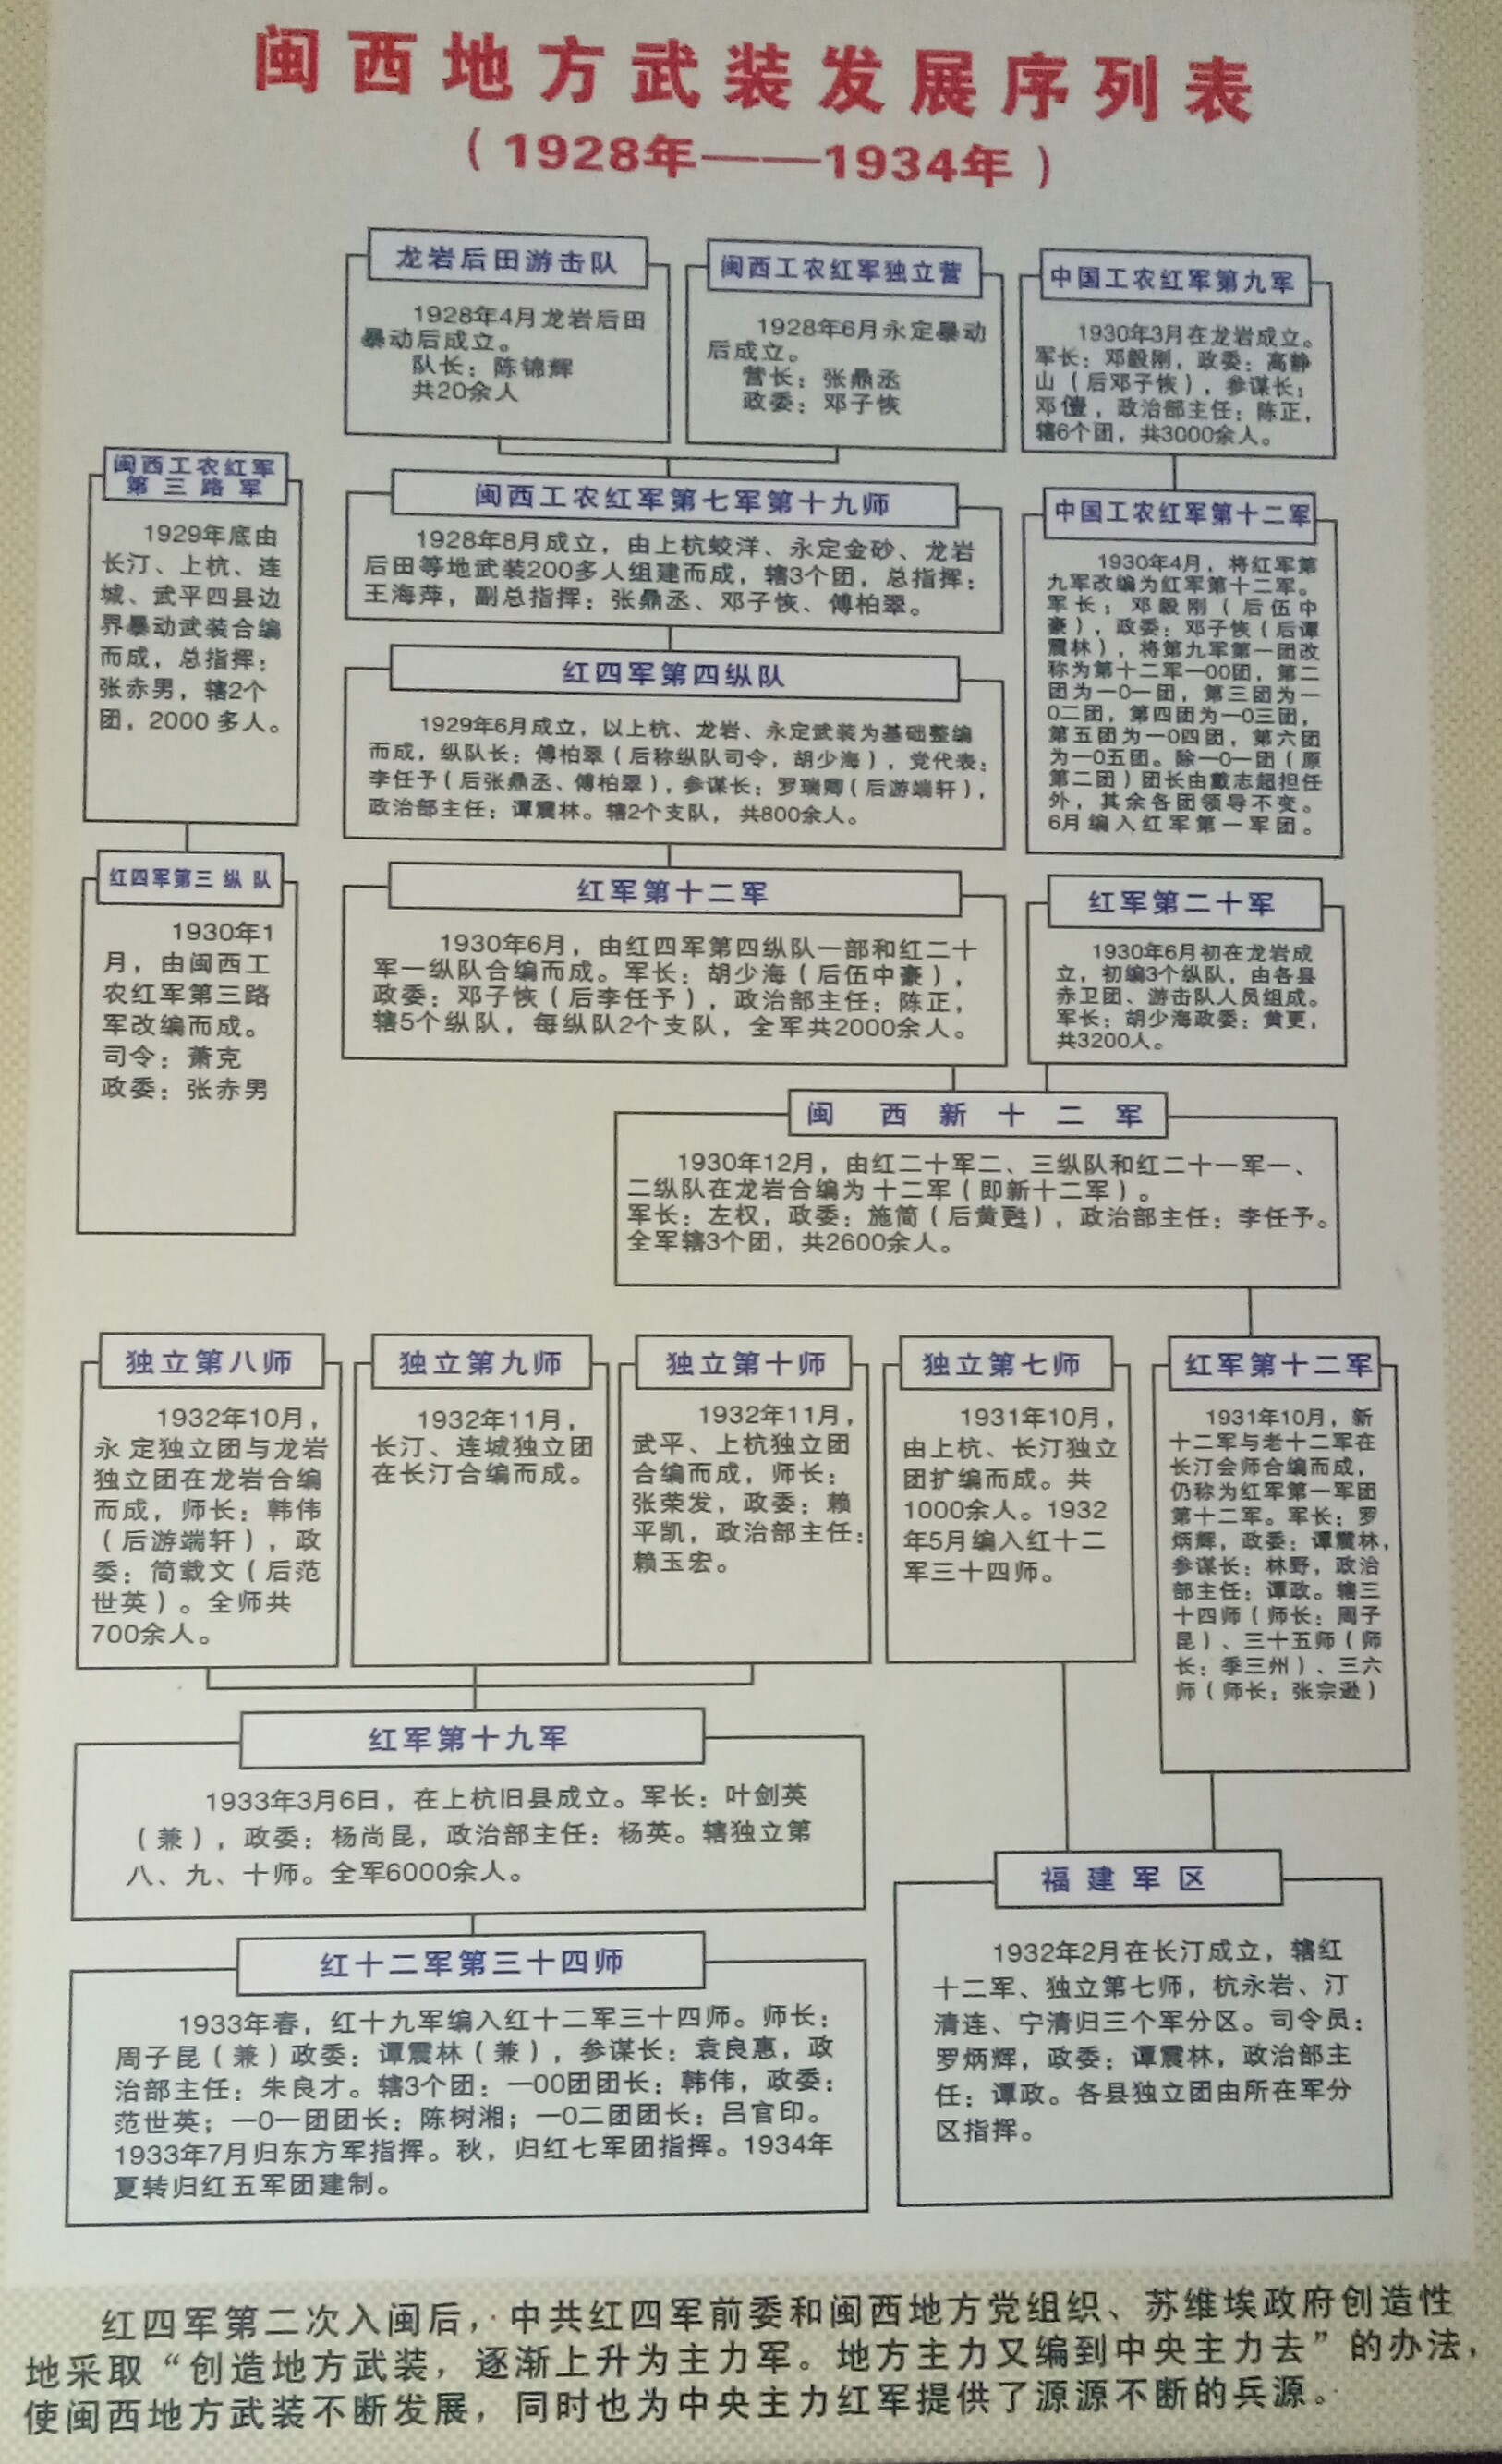 闽西地方武装发展序列表
（1928年——1934年）
龙岩后田游击队
1928年4月龙岩后田
暴动后成立。
队长：陈锦辉
共20余人
闽西工农红军独立营
1928年6月永定暴动
后成立。
营长：张鼎丞
政委：邓子恢
中国工农红军第九军
1930年3月在龙岩成立。
军长：邓毅刚，政委：高静
山（后邓子恢），参谋长：
邓僮，政治部主任：陈正，
辖6个团，共3000余人。
闽西工农红军
第三路军
1929年底由
长汀、上杭、连
城、武平四县边
界暴动武装合编
而成，总指挥：
张赤男，辖2个
团，2000多人。
闽西工农红军第七军第十九师
1928年8月成立，由上杭蛟洋、永定金砂、龙岩
后田等地武装200多人组建而成，辖3个团，总指挥：
王海萍，副总指挥：张鼎丞、邓子恢、傅柏翠。
中国工农红军第十二军
1930年4月，将红军第
九军改编为红军第十二军。
军长：邓毅刚（后伍中
豪），政委：邓子恢（后谭
震林），将第九军第一团改
称为第十二军一00团，第二
团为一0一团，第三团为一
0二团，第四团为一0三团，
第五团为一0四团，第六团
为一0五团。除一0一团（原
第二团）团长由戴志超担任
外，其余各团领导不变。
6月编入红军第一军团。
红四军第四纵队
1929年6月成立，以上杭、龙岩、永定武装为基础整编
而成，纵队长：傅柏翠（后称纵队司令，胡少海），党代表：
李任予（后张鼎丞、傅柏翠），参谋长：罗瑞卿（后游端轩），
政治部主任：谭震林。辖2个支队，共800余人。
红四军第三纵队
1930年1
月，由闽西工
农红军第三路
军改编而成。
司令：萧克
政委：张赤男
红军第十二军
1930年6月，由红四军第四纵队一部和红二十
军一纵队合编而成。军长：胡少海（后伍中豪），
政委：邓子恢（后李任予），政治部主任：陈正，
辖5个纵队，每纵队2个支队，全军共2000余人。
红军第二十军
1930年6月初在龙岩成
立，初编3个纵队，由各县
赤卫团、游击队人员组成。
军长：胡少海政委：黄更，
共3200人。
闽西新十二军
1930年12月，由红二十军二、三纵队和红二十一军一、
二纵队在龙岩合编为十二军（即新十二军）。
军长：左权，政委：施简（后黄甦），政治部主任：李任予。
全军辖3个团，共2600余人。
独立第八师
1932年10月，
永定独立团与龙岩
独立团在龙岩合编
而成，师长：韩伟
（后游端轩），政
委：简载文（后范
世英）。全师共
700余人。
独立第九师
1932年11月，
长汀、连城独立团
在长汀合编而成。
独立第十师
1932年11月，
武平、上杭独立团
合编而成，师长：
张荣发，政委：赖
平凯，政治部主任：
赖玉宏。
独立第七师
1931年10月，
由上杭、长汀独立
团扩编而成。共
1000余人。1932
年5月编入红十二
军三十四师。
红军第十二军
1931年10月，新
十二军与老十二军在
长汀会师合编而成，
仍称为红军第一军团
第十二军。军长：罗
炳辉，政委：谭震林，
参谋长：林野，政治
部主任：谭政。辖三
十四师（师长：周子
昆）、三十五师（师
长：季三州）、三六
师（师长：张宗逊）
红军第十九军
1933年3月6日，在上杭旧县成立。军长：叶剑英
（兼），政委：杨尚昆，政治部主任：杨英。辖独立第
八、九、十师。全军6000余人。
红十二军第三十四师
1933年春，红十九军编入红十二军三十四师。师长：
周子昆（兼）政委：谭震林（兼），参谋长：袁良惠，政
治部主任：朱良才。辖3个团：一00团团长：韩伟，政委：
范世英；一0一团团长：陈树湘；一0二团团长：吕官印。
1933年7月归东方军指挥。秋，归红七军团指挥。1934年
夏转归红五军团建制。
福建军区
1932年2月在长汀成立，辖红
十二军、独立第七师，杭永岩、汀
清连、宁清归三个军分区。司令员：
罗炳辉，政委：谭震林，政治部主
任：谭政。各县独立团由所在军分
区指挥。
红四军第二次入闽后，中共红四军前委和闽西地方党组织、苏维埃政府创造性
地采取“创造地方武装，逐渐上升为主力军。地方主力又编到中央主力去”的办法，
使闽西地方武装不断发展，同时也为中央主力红军提供了源源不断的兵源。